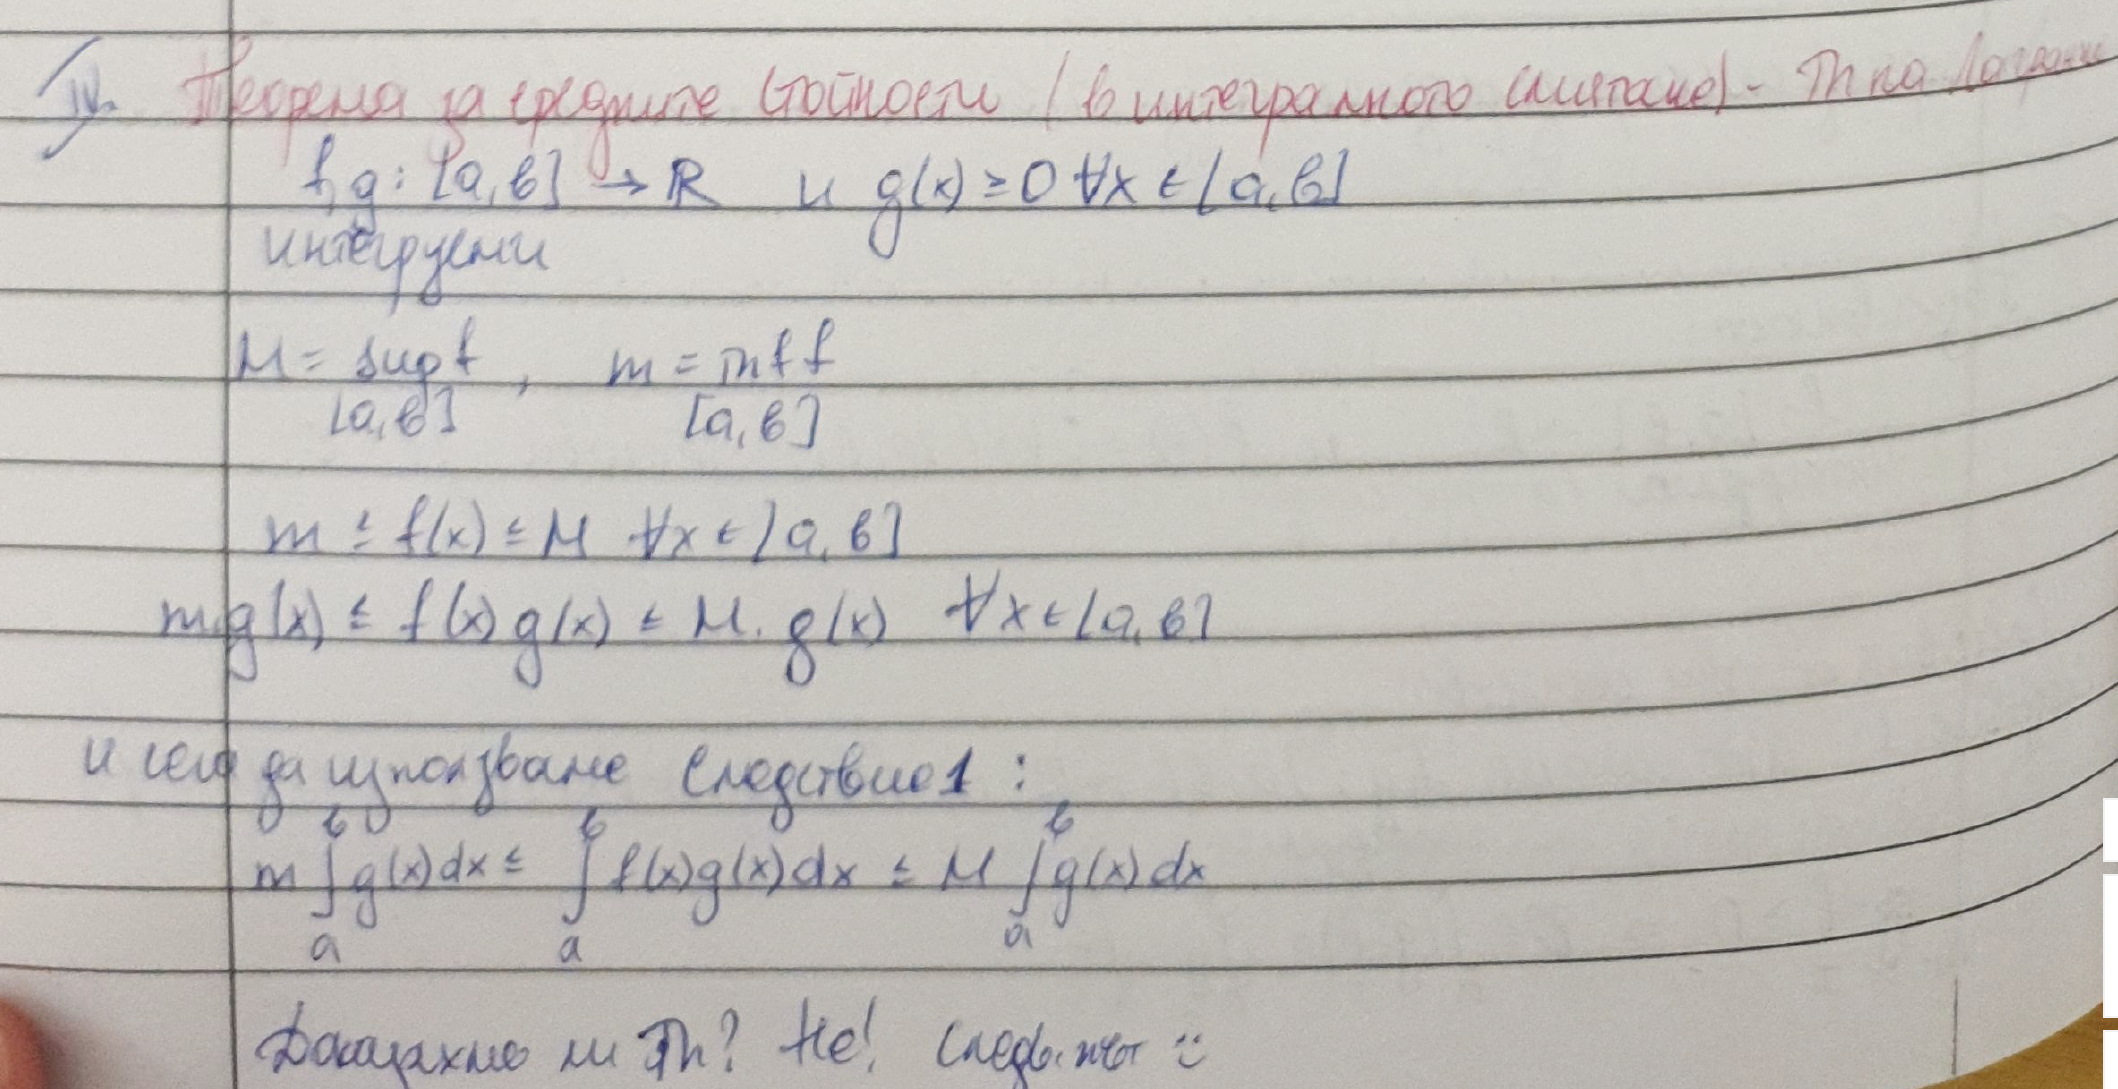 IV. Теорема за средните стойности (в интегралното смятане) - Th на Лагранж
f, g: [a, b] → R и g(x) ≥ 0 ∀x ∈ [a, b]
интегруеми
M = sup f, m = inf f
[a, b] [a, b]
m ≤ f(x) ≤ M ∀x ∈ [a, b]
m.g(x) ≤ f(x) g(x) ≤ M. g(x) ∀x ∈ [a, b]
и сега да използваме Следствие 1:
m ∫ₐᵇ g(x)dx ≤ ∫ₐᵇ f(x)g(x)dx ≤ M ∫ₐᵇ g(x)dx
Доказахме ли Th? Не! Следв. път :)